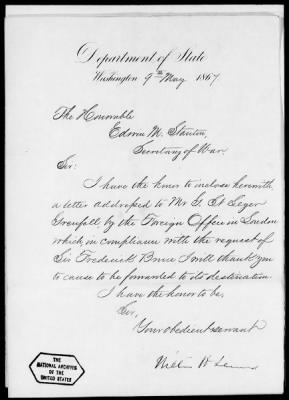 Department of State
Washington 9th May 1867
The Honorable
Edwin M. Stanton,
Secretary of War.
Sir:
I have the honor to inclose herewith
a letter addressed to Mr G. St Leger
Grenfell by the Foreign Office in London
which, in compliance with the request of
Sir Frederick Bruce I will thank you
to cause to be forwarded to its destination.
I have the honor to be,
Sir,
Your obedient servant
William H Seward
THE
NATIONAL ARCHIVES
OF THE
UNITED STATES